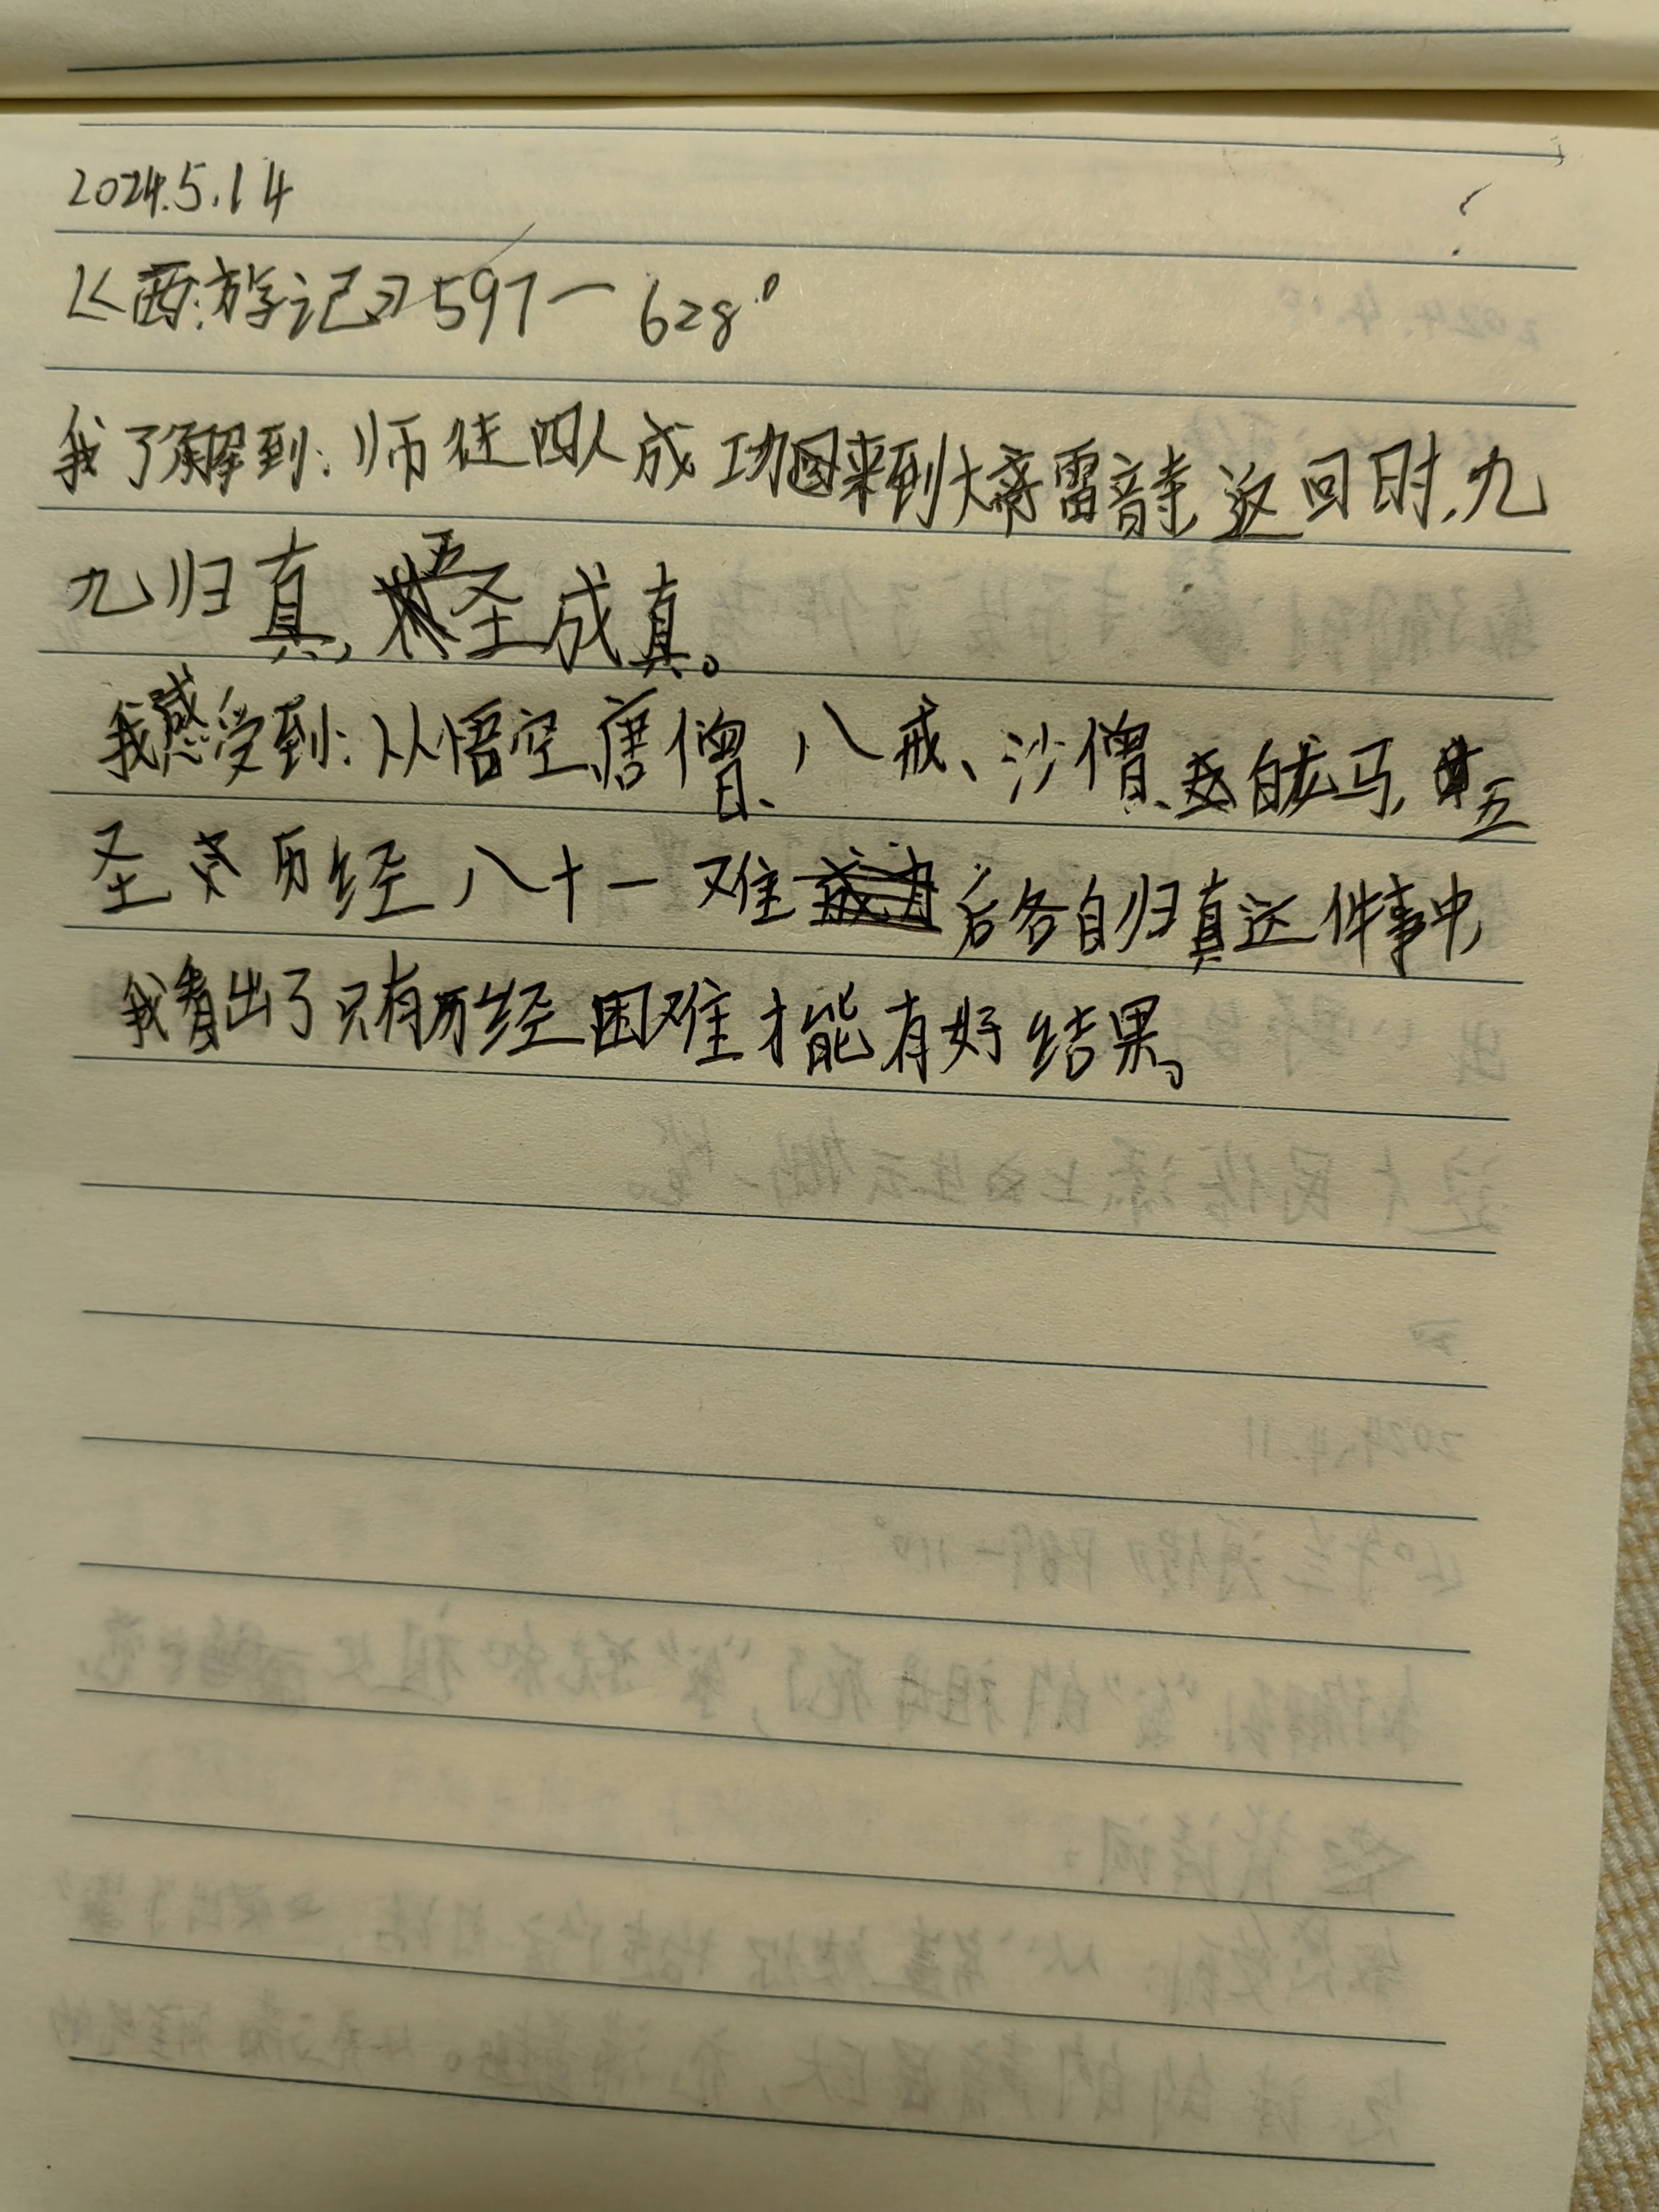 2024.5.14
《西游记》597—628
我了解到:师徒四人成功来到大雷音寺,返回时,九
九归真,五圣成真。
我感受到:从悟空、唐僧、八戒、沙僧、白龙马,五
圣历经八十一难后各自归真这件事中,
我看出了只有历经困难才能有好结果。